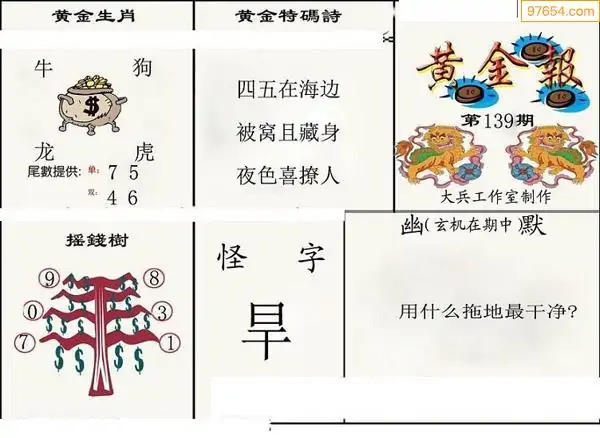 97654.com
黄金生肖
牛 狗
龙 虎
尾數提供: 单: 7 5
双: 4 6
黄金特碼詩
四五在海边
被窝且藏身
夜色喜撩人
黄金報
第139期
大兵工作室制作
摇錢樹
9 8
0 3
7 1
$ $ $ $ $ $ $ $
怪 字
旱
幽(玄机在期中)默
用什么拖地最干净?